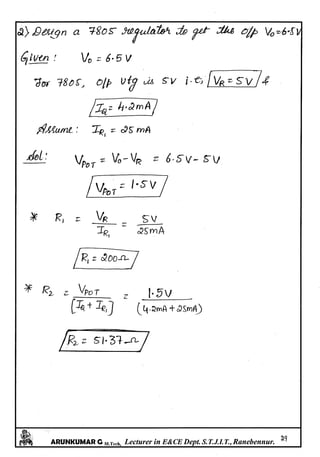 2) Design a 7805 regulator to get the o/p Vo=6.5V
Given : Vo = 6.5V
For 7805, o/p vtg is 5V i.e, VR = 5V &
IQ = 4.2mA
Assume : IR1 = 25 mA
Sol: VPOT = Vo - VR = 6.5V - 5V
VPOT = 1.5V
* R1 = VR / IR1 = 5V / 25mA
R1 = 200Ω
* R2 = VPOT / [IQ + IR1] = 1.5V / (4.2mA + 25mA)
R2 = 51.37Ω
ARUNKUMAR G M.Tech, Lecturer in E&CE Dept. S.T.J.I.T., Ranebennur. 29